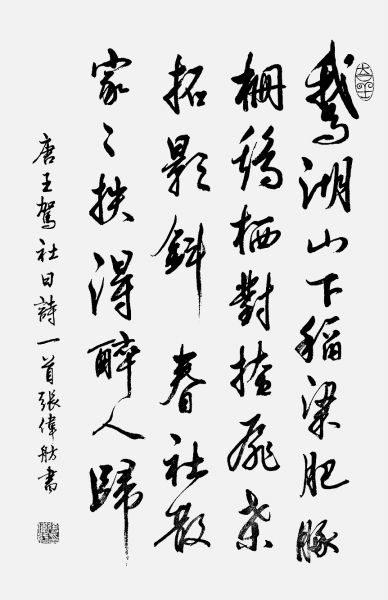 鵝湖山下稻梁肥豚
柵鷄栖對掩扉桑
柘影斜春社散
家々扶得醉人歸
唐王駕社日詩一首張偉舫書